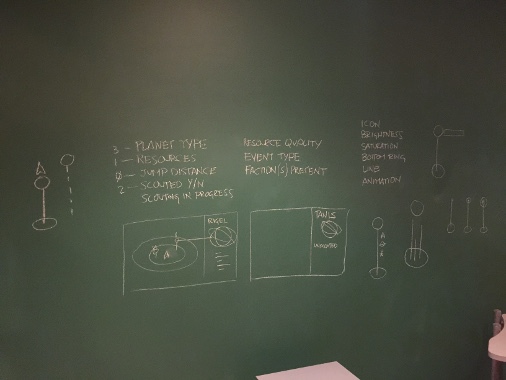 3 - PLANET TYPE
1 - RESOURCES
Ø - JUMP DISTANCE
2 - SCOUTED Y/N
SCOUTING IN PROGRESS
RESOURCE QUALITY
EVENT TYPE
FACTION(S) PRESENT
ICON
BRIGHTNESS
SATURATION
BOTTOM RING
LINE
ANIMATION
RIGEL